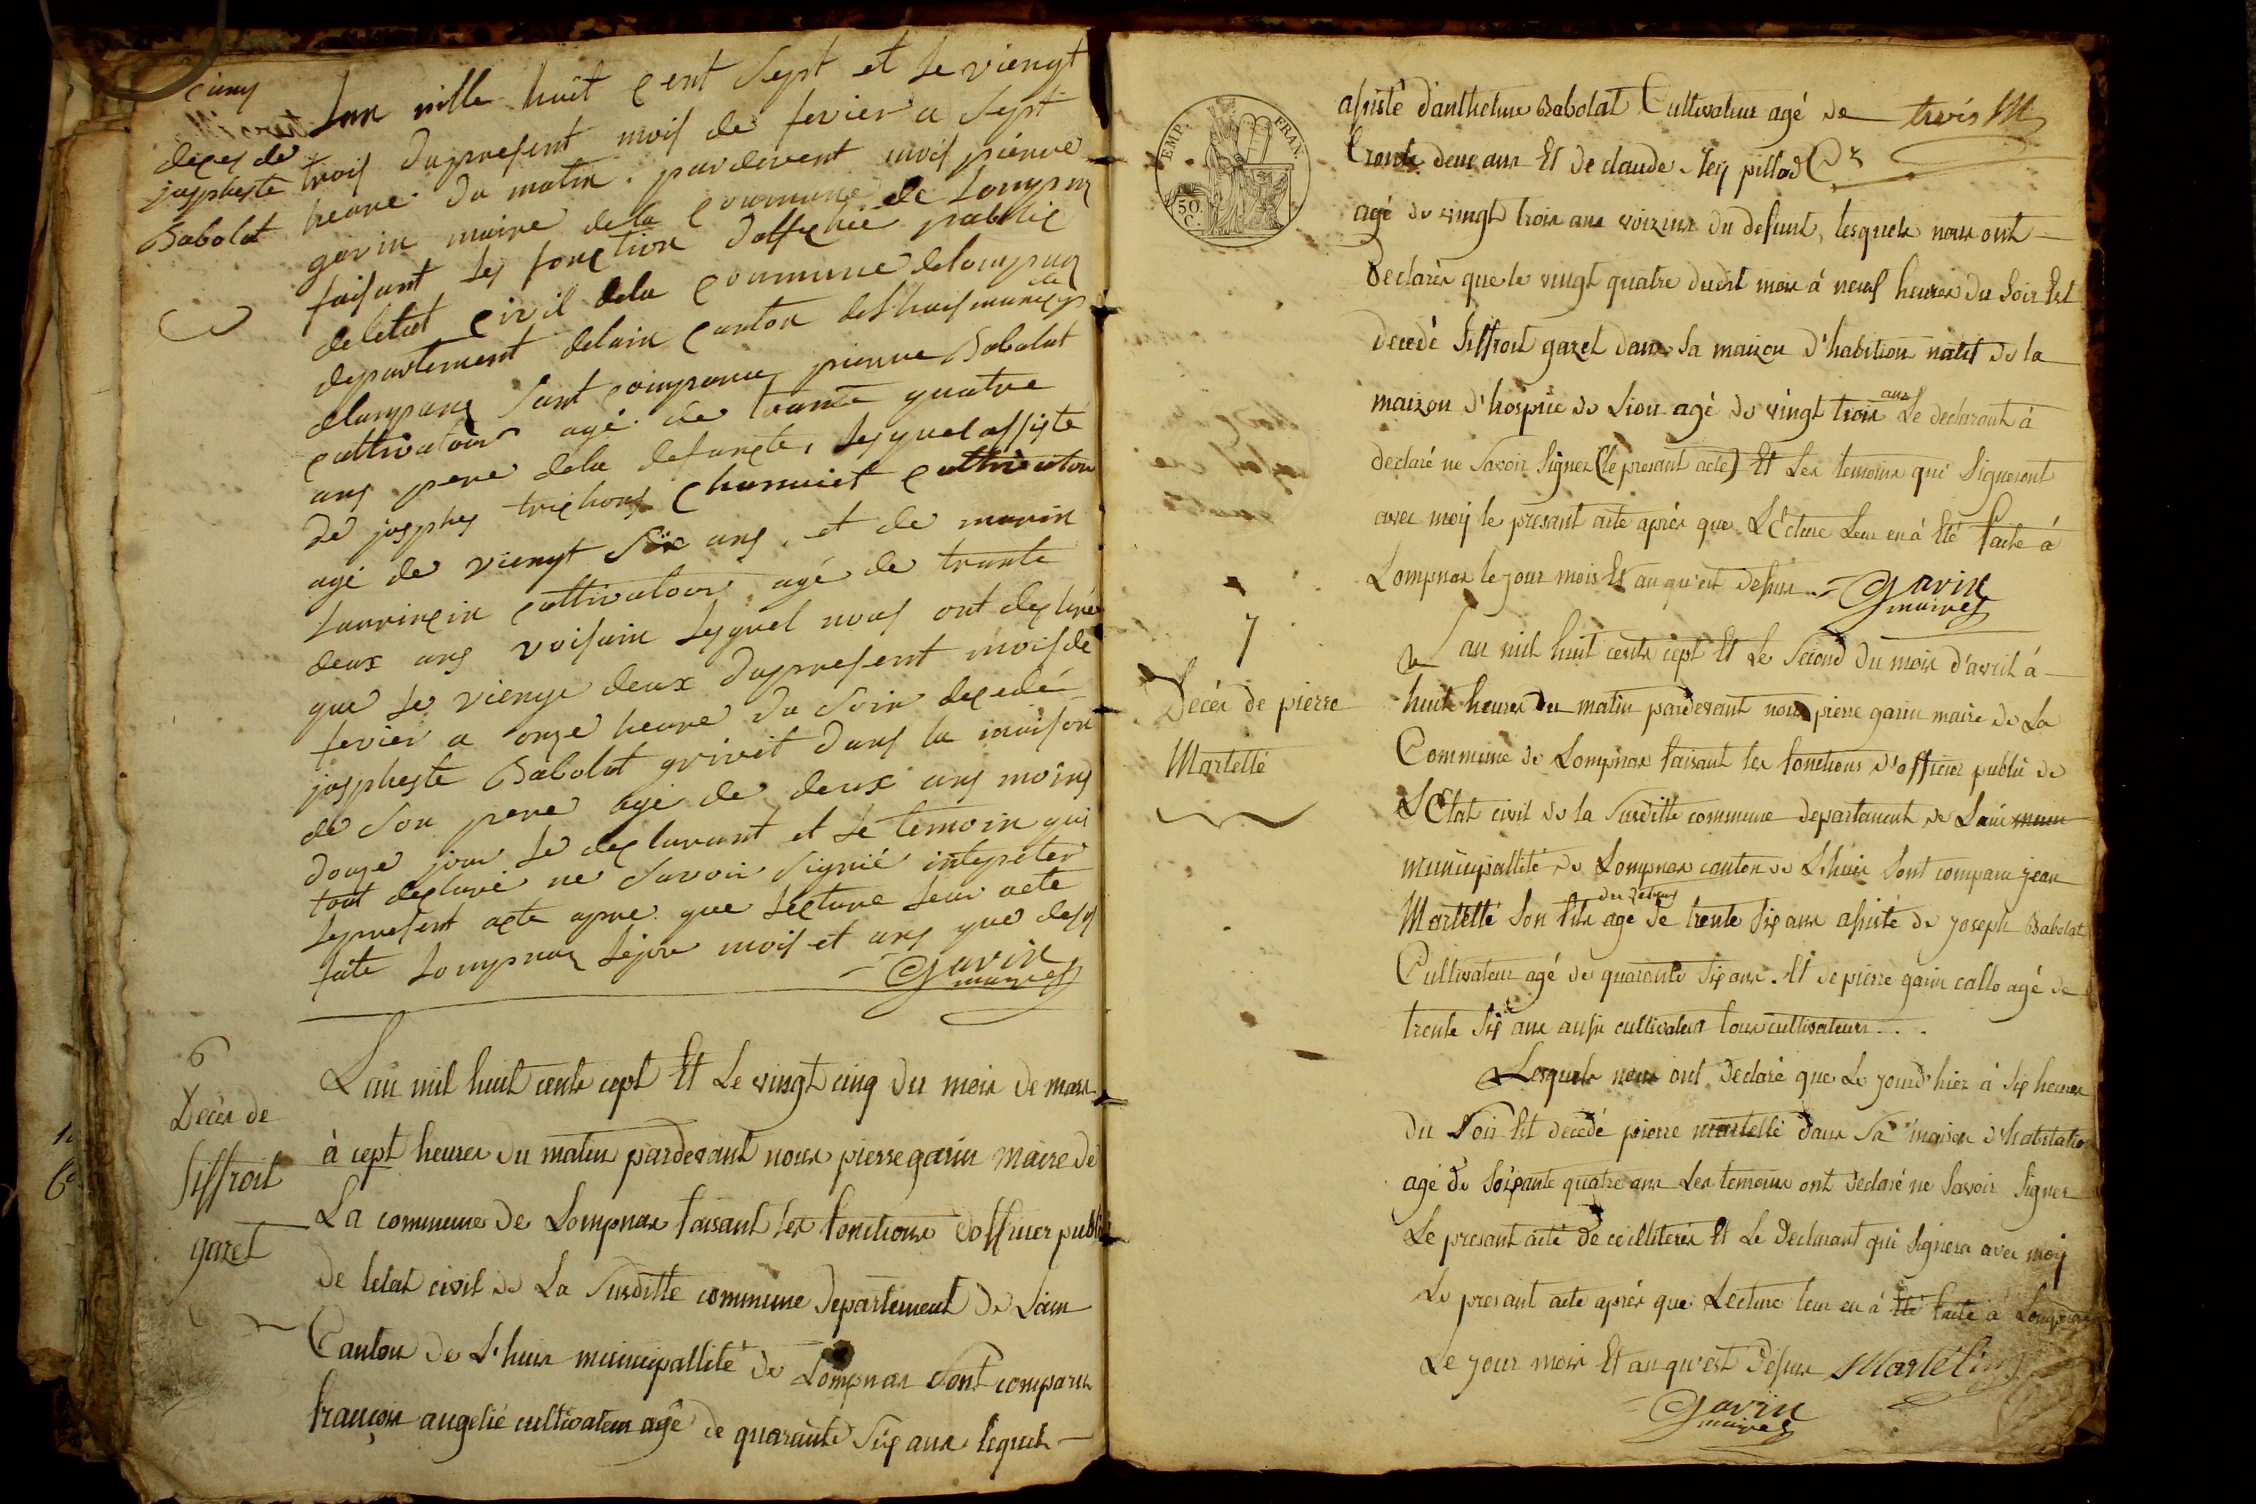 cinq
deces de
jospheste
Babolat
Lan mille huit cent sept et le viengt
trois dupresent mois de fevier a sept
heure du matin. pardevent mois pierre
garin maire de la commune de Lompnaz
faisant les fonction dofficié public
deletat civil dela commune delompnaz
departement delain canton delhuis municip
delompnaz sont comparu pierre Babolat
cultivatour agé de trante quatre
ans pere dela defuncte, lesquel assisté
de josphes trichons charmiet cultivatour
agé de viengt six ans. et de marin
laurincin cultivatour agé de trante
deux ans voisain lesquel nous ont declaré
que le viengt deux dupresent mois de
fevier a onze heure du soir decedé
jospheste Babolat grivit dans la maison
de son pere agé de deux ans moins
douze jour le declarant et le temoin qui
tout declaré ne savoir signié
lepresent acte apre que lecture leur acte
faite Lompnaz lejour mois et ans que desus
Garin
maire
6
Décès de
Siffroit
garet
Lan mil huit cents cept Et Le vingt cinq du mois de mars
à cept heures du matin pardevant nous pierre garin maire de
La commune de Lompnas faisant les fonctions dofficier public
de letat civil de La susditte commune departement de Lain
Canton de L'huis municipallité de Lompnas sont comparus
françois angelié cultivateur agé de quarante six ans lequel
EMP. FRAN.
50
C.
assisté d'anthelme Babolat Cultivateur agé de
trente deux ans Et de claude pillod
agé de vingt trois ans voizins du defunt, lesquels nous ont
Declarés que le vingt quatre dudit mois à neuf heures du soir Est
decedé Siffroit garet dans sa maizon d'habition natif de la
maizon d'hospice de Lion agé de vingt trois ans Le declarant à
declaré ne savoir signer (le presant acte) Et Les temoins qui signeront
avec moy le presant acte après que L'Ecture Leur en à Eté faite à
Lompnas le jour mois Et an qu'est dessus.
Garin
maire
7
Décès de pierre
Martellé
Lan mil huit cents cept Et Le second du mois d'avril à
huit heures du matin pardevant nous pierre garin maire de La
Commune de Lompnas faisant les fonctions d'officier public de
L'Etat civil de la susditte commune departement de Lain
municipallité de Lompnas canton de L'huis sont comparu jean
Martellé son fils agé de trente six ans assisté de joseph Babolat
Cultivateur agé de quarante six ans. Et de pierre garin callo agé de
trente six ans aussi cultivateur tous cultivateurs...
Lesquels nous ont declaré que Le jourd'hier à six heures
du soir Est decedé pierre martellé dans sa maison d'habitation
agé de soixante quatre ans Les temoins ont declaré ne savoir signer
Le presant acte de ce illiterés Et Le declarant qui signera avec moy
Le presant acte après que Lecture leur en à Eté faite à Lompnas
Le jour mois Et an qu'est dessus
Garin
maire